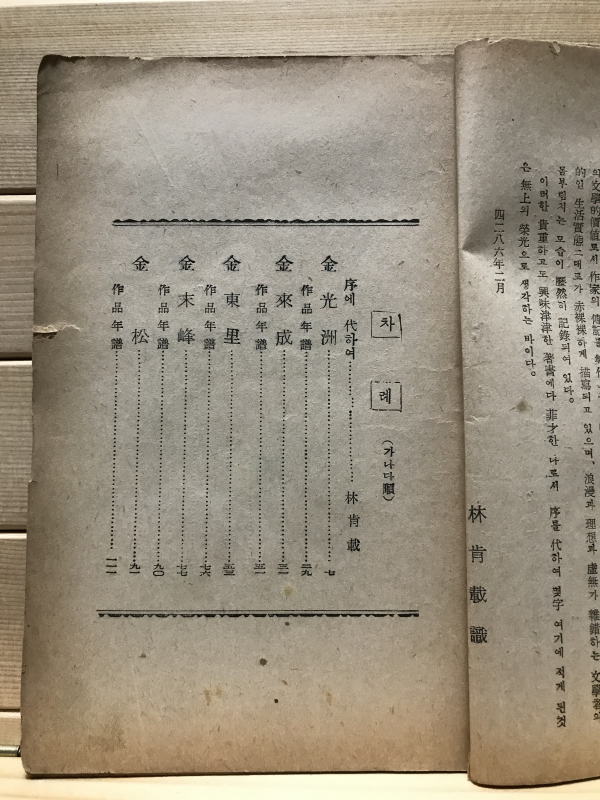 의 文學的價値로서 作家의 傳記
的인 生活實態그대로가 赤裸裸하게 描寫되고 있으며, 浪漫과 理想과 虛無가 雜錯하는 文學者의
몸부림치는 모습이 歷然히 記錄되여 있다。
이러한 貴重하고도 興味津津한 著書에다 菲才한 나로서 序를 代하여 몇字 여기에 적게 된것
은 無上의 榮光으로 생각하는 바이다。
四二八六年二月
林肯載識
차례 (가나다順)
序에 代하여……………林肯載
金光洲……………七
作品年譜……………二九
金來成……………三一
作品年譜……………五一
金東里……………五三
作品年譜……………七六
金末峰……………七七
作品年譜……………九〇
金松……………九一
作品年譜……………一一一